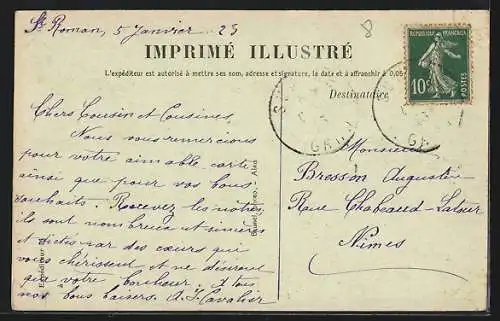 St Roman, 5 Janvier 23
8
IMPRIMÉ ILLUSTRÉ
L'expéditeur est autorisé à mettre ses nom, adresse et signature, la date et à affranchir à 0,05
Destinataire
RÉPUBLIQUE FRANÇAISE
10c
POSTES
Chers Cousin et Cousines,
Nous vous remercions
pour votre aimable carte
ainsi que pour vos bons
souhaits. Recevez les nôtres
ils sont nombreux et
et dictés par des cœurs qui
vous chérissent et ne désirent
que votre bonheur. A tous
nos bons baisers. A. J. Cavalier
Expéditeur
Monsieur
Bresson Augustin
Rue Chabeaud-Latour
Nîmes
GARD
GARD